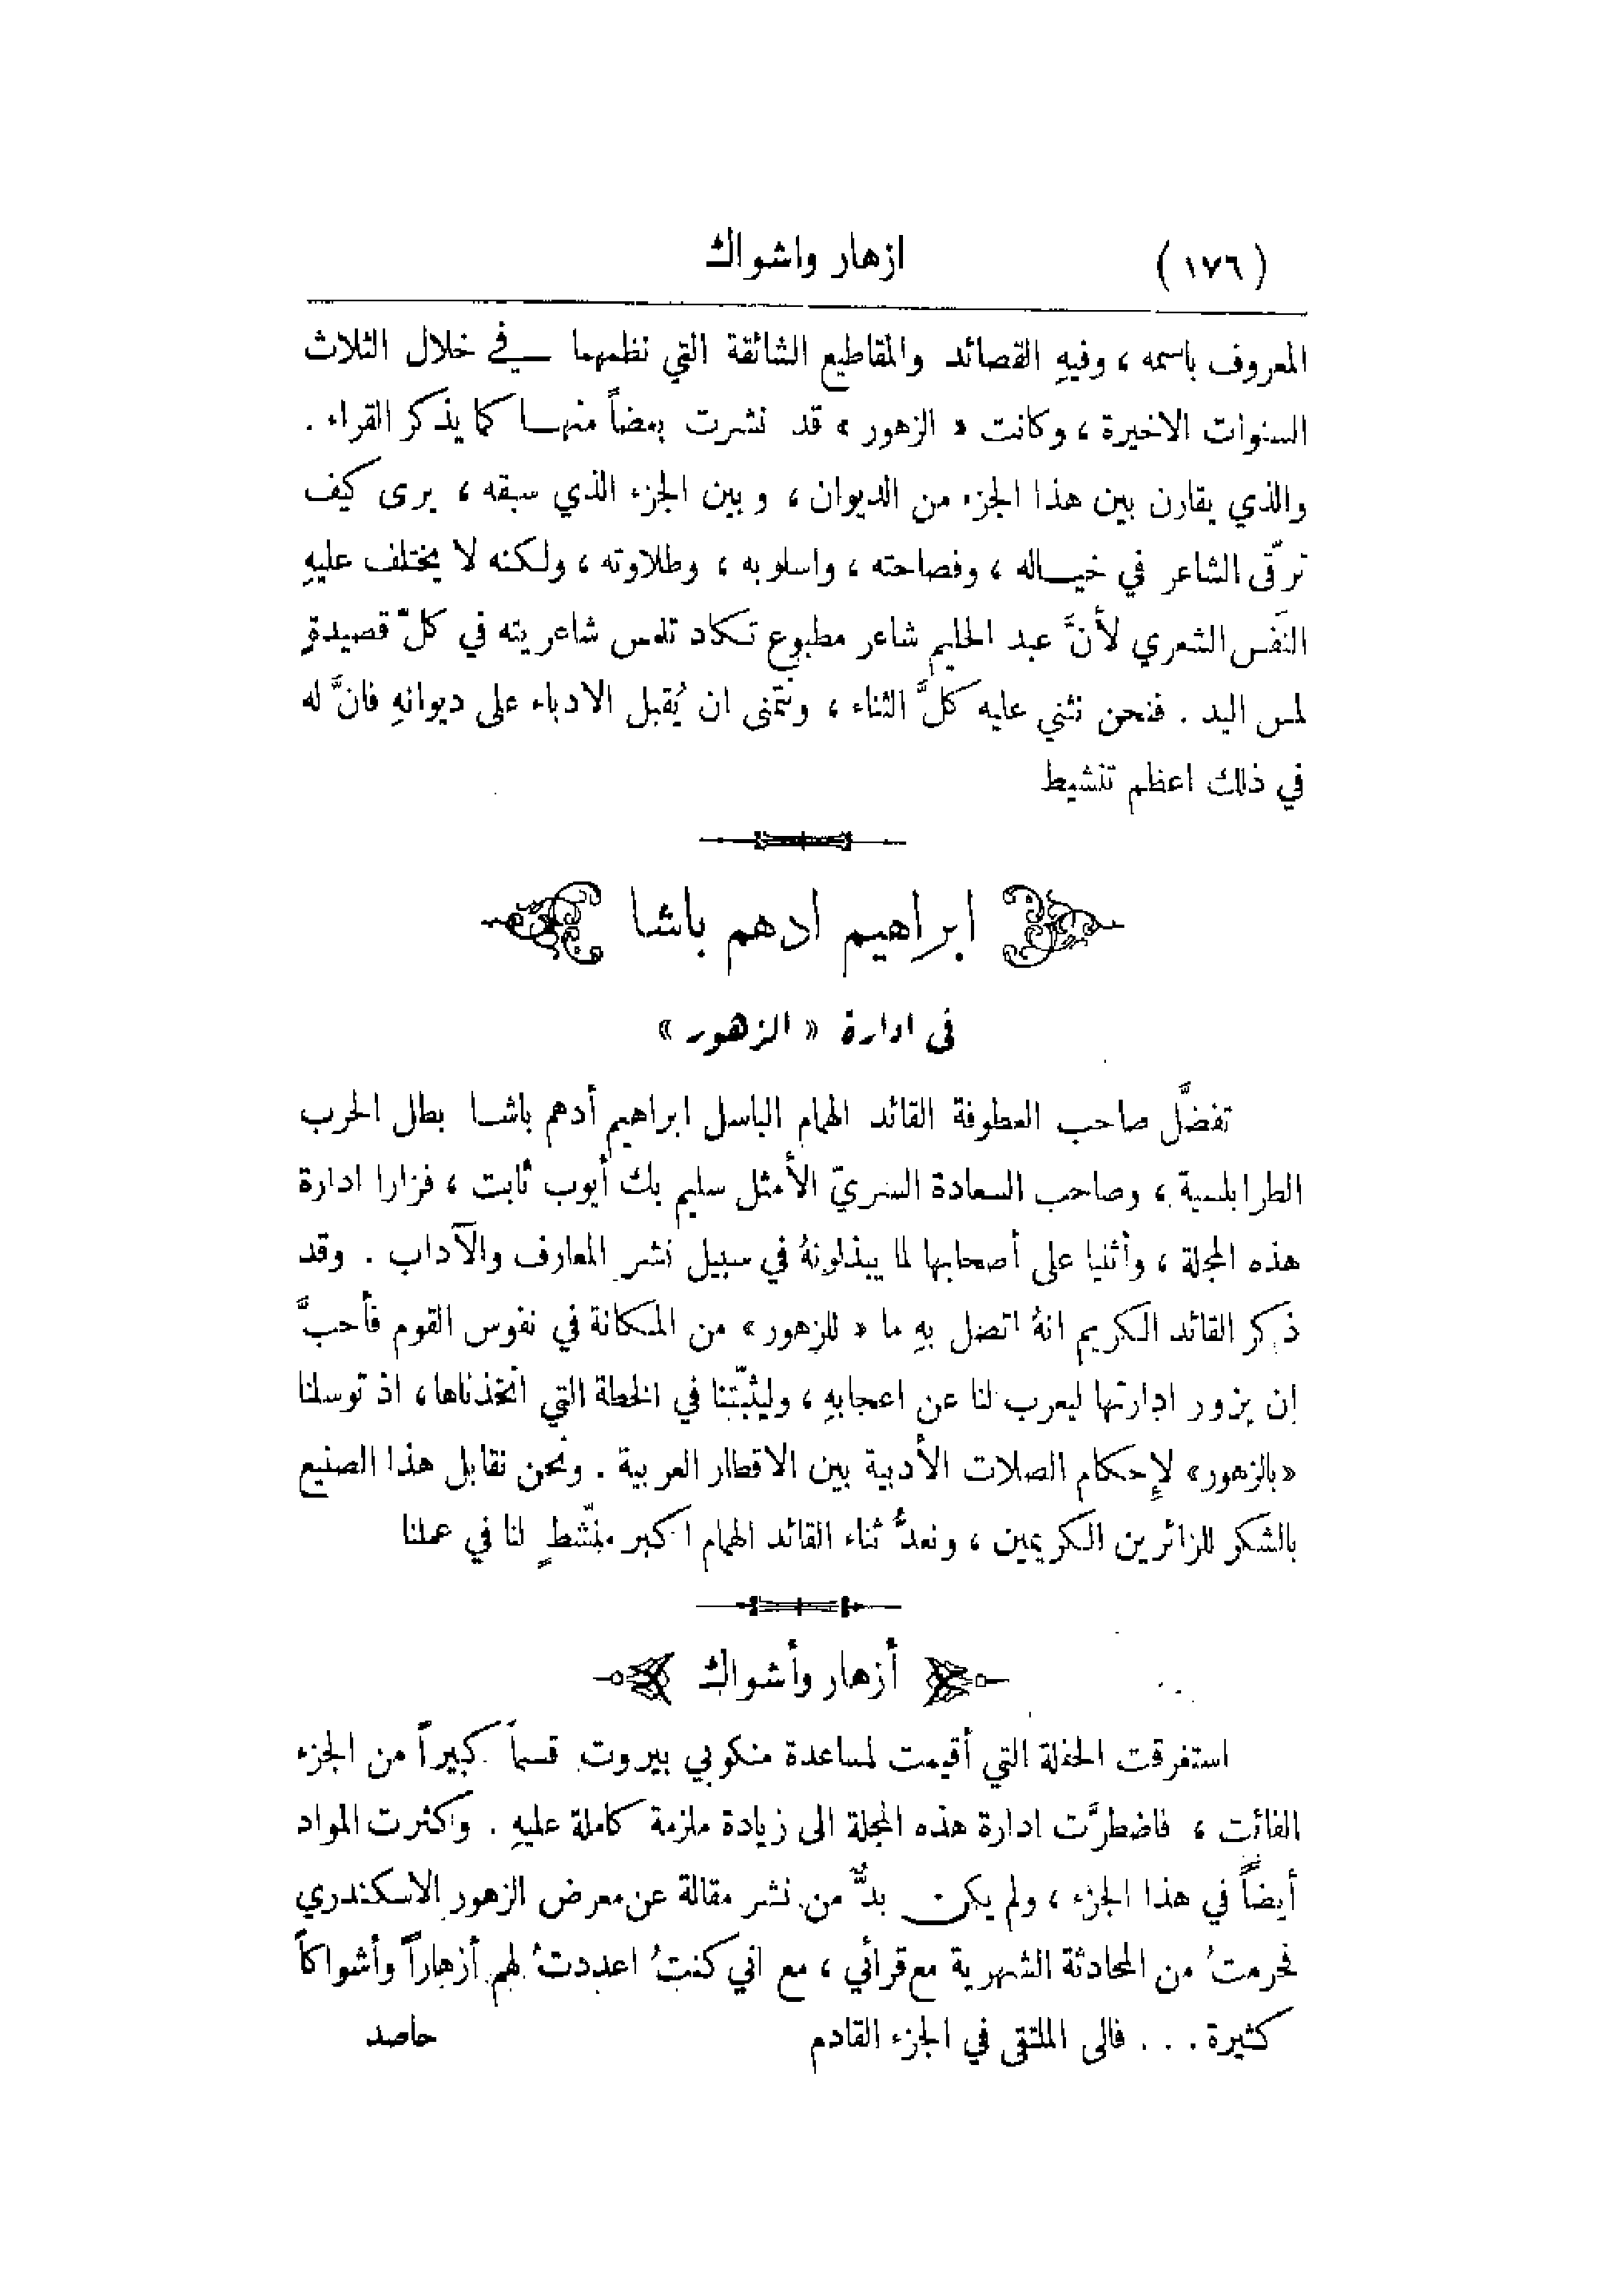 (١٧٦) ازهار واشواك
المعروف باسمه ، وفيهِ القصائد والمقاطيع الشائقة التي نظمهما في خلال الثلاث
السنوات الاخيرة ، وكانت « الزهور » قد نشرت بعضاً منهـا كما يذكر القراء .
والذي يقارن بين هذا الجزء من الديوان ، وبين الجزء الذي سبقه ، يرى كيف
ترقّى الشاعر في خيـاله ، وفصاحته ، واسلوبه ، وطلاوته ، ولكنه لا يختلف عليهِ
النفَس الشعري لأنَّ عبد الحليم شاعر مطبوع تكاد تلمس شاعريته في كلّ قصيدةٍ
لمس اليد . فنحن نثني عليه كلَّ الثناء ، ونتمنى ان يُقبل الادباء على ديوانهِ فانَّ له
في ذلك اعظم تنشيط
ابراهيم ادهم باشا
في ادارة « الزهور »
تفضَّل صاحب العطوفة القائد الهمام الباسل ابراهيم أدهم باشـا بطل الحرب
الطرابلسية ، وصاحب السعادة السريّ الأمثل سليم بك أيوب ثابت ، فزارا ادارة
هذه المجلة ، وأثنيا على أصحابها لما يبذلونهُ في سبيل نشر المعارف والآداب . وقد
ذكر القائد الكريم انهُ اتصل بهِ ما « للزهور » من المكانة في نفوس القوم فأحبَّ
ان يزور ادارتها ليعرب لنا عن اعجابهِ ، وليثبّتنا في الخطة التي اتخذناها ، اذ توسلنا
« بالزهور » لإحكام الصلات الأدبية بين الاقطار العربية . ونحن نقابل هذا الصنيع
بالشكر للزائرين الكريمين ، ونعدُّ ثناء القائد الهمام اكبر منشّطٍ لنا في عملنا
أزهار وأشواك
استغرقت الحفلة التي أقيمت لمساعدة منكوبي بيروت قسماً كبيراً من الجزء
الفائت ، فاضطرَّت ادارة هذه المجلة الى زيادة ملزمة كاملة عليهِ . وكثرت المواد
أيضاً في هذا الجزء ، ولم يكن بدٌّ من نشر مقالة عن معرض الزهور الاسكندري
فحرمتُ من المحادثة الشهرية مع قرائي ، مع اني كنتُ اعددتُ لهم أزهاراً وأشواكاً
كثيرة . . . فالى الملتقى في الجزء القادم حاصد